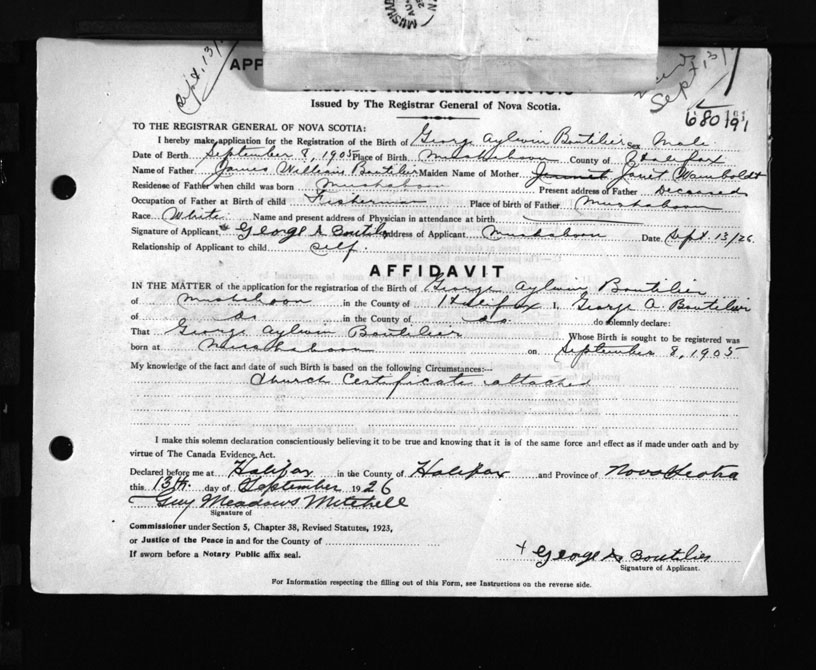 MUSHAB
AU
Sept. 13/
Sept 13/
APP
Issued by The Registrar General of Nova Scotia.
680191
TO THE REGISTRAR GENERAL OF NOVA SCOTIA:
I hereby make application for the Registration of the Birth of George Aylwin Boutilier Sex Male
Date of Berth September 8, 1905 Place of Birth Mushaboon County of Halifax
Name of Father James William Boutilier Maiden Name of Mother Jennet Janet Wamboldt
Residense of Father when child was born Mushaboon Present address of Father Deceased
Occupation of Father at Birth of child Fisherman Place of birth of Father Mushaboon
Race White Name and present address of Physician in attendance at birth
Signature of Applicant George A Boutilier Address of Applicant Mushaboon Date Sept 13/26.
Relationship of Applicant to child self.
AFFIDAVIT
IN THE MATTER of the application for the registration of the Birth of George Aylwin Boutilier
of Mushaboon in the County of Halifax I, George A. Boutilier
of do in the County of do do solemnly declare:
That George Aylwin Boutilier Whose Birth is sought to be registered was
born at Mushaboon on September 8, 1905
My knowledge of the fact and date of such Birth is based on the following Circumstances:—
Church Certificate attached
I make this solemn declaration conscientiously believing it to be true and knowing that it is of the same force and effect as if made under oath and by
virtue of The Canada Evidence Act.
Declared before me at Halifax in the County of Halifax and Province of Nova Scotia
this 13th day of September 1926
Guy Meadows Mitchell
Signature of
Commissioner under Section 5, Chapter 38, Revised Statutes, 1923,
or Justice of the Peace in and for the County of
If sworn before a Notary Public affix seal.
+ George A Boutilier
Signature of Applicant.
For Information respecting the filling out of this Form, see Instructions on the reverse side.